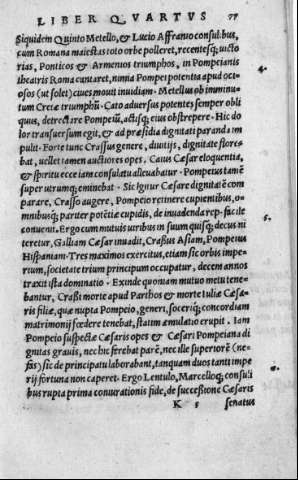 LIBER QVARTVS 77
Siquidem Quinto Metello, & Lucio Affranio consulibus,
cum Romana maiestas toto orbe polleret, recentesq; uicto
rias, Ponticos & Armenios triumphos, in Pompeianis
theatris Roma cantaret, nimia Pompei potentia apud oci-
osos (ut solet) ciues mouit inuidiam. Metellus ob imminu-
tum Cretæ triumphũ. Cato aduersus potentes semper obli
quus, detrectare Pompeiũ, actisq; eius obstrepere. Hic do
lor transuersum egit, & ad præsidia dignitati paranda im
pulit. Forte tunc Crassus genere, diuitijs, dignitate flore
bat, uellet tamen auctiores opes. Caius Cæsar eloquentia,
& spiritu ecce iam consulatu alleuabatur. Pompeius tamẽ
super utrumq; eminebat. Sic igitur Cæsare dignitatẽ com
parare, Crasso augere, Pompeio retinere cupientibus, o-
mnibusq; pariter potẽtiæ cupidis, de inuadenda rep. facile
conuenit. Ergo cum mutuis uiribus in suum quisq; decus ni
teretur, Galliam Cæsar inuadit, Crassus Asiam, Pompeius
Hispaniam. Tres maximos exercitus, etiam sic orbis impe-
rium, societate trium principum occupatur, decem annos
traxit ista dominatio. Exinde quoniam mutuo metu tene-
bantur, Crassi morte apud Parthos & morte Iuliæ Cæsa-
ris filiæ, quæ nupta Pompeio, generi, soceriq; concordiam
matrimonij fœdere tenebat, statim æmulatio erupit. Iam
Pompeio suspectæ Cæsaris opes & Cæsari Pompeiana di
gnitas grauis, nec hic ferebat parẽ, nec ille superiorẽ (ne-
fas) sic de principatu laborabant, tanquam duos tanti impe
rij fortuna non caperet. Ergo Lentulo, Marcelloq; consuli
bus rupta prima coniurationis fide, de successione Cæsaris
K 5 senatus